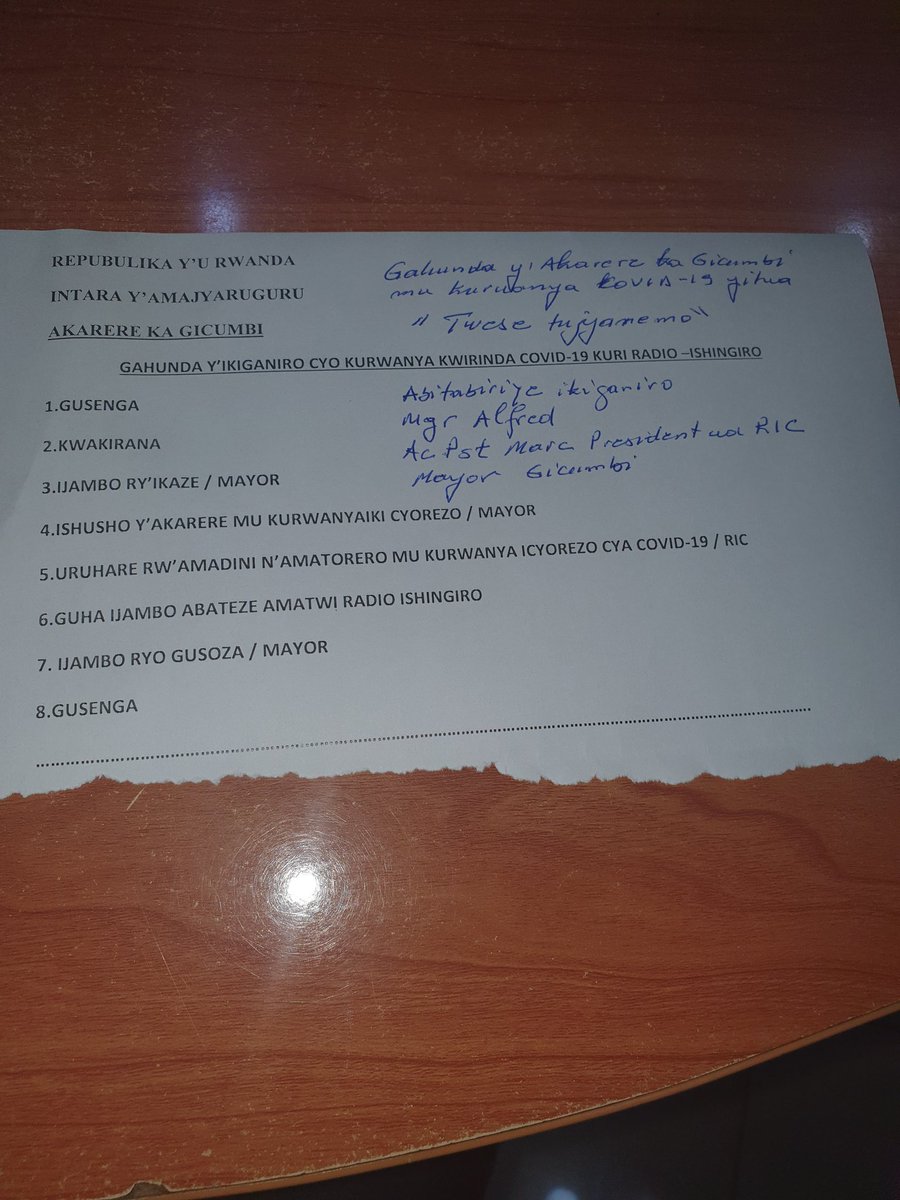 REPUBULIKA Y'U RWANDA
INTARA Y'AMAJYARUGURU
AKARERE KA GICUMBI
Gahunda y'Akarere ka Gicumbi
mu kurwanya COVID-19 yitwa
"Twese tujyanemo"
GAHUNDA Y'IKIGANIRO CYO KURWANYA KWIRINDA COVID-19 KURI RADIO –ISHINGIRO
1.GUSENGA
2.KWAKIRANA
3.IJAMBO RY'IKAZE / MAYOR
Abitabiriye ikiganiro
Mgr Alfred
Ac Pst Marc President wa RIC
Mayor Gicumbi
4.ISHUSHO Y'AKARERE MU KURWANYAIKI CYOREZO / MAYOR
5.URUHARE RW'AMADINI N'AMATORERO MU KURWANYA ICYOREZO CYA COVID-19 / RIC
6.GUHA IJAMBO ABATEZE AMATWI RADIO ISHINGIRO
7. IJAMBO RYO GUSOZA / MAYOR
8.GUSENGA